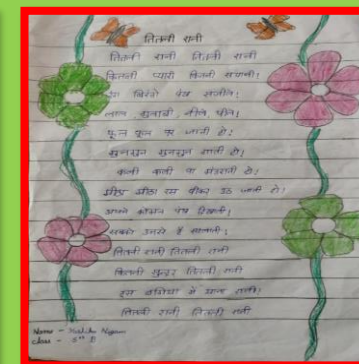 तितली रानी
तितली रानी तितली रानी
कितनी प्यारी कितनी सयानी।
रंग बिरंगे पंख सजीले।
लाल, गुलाबी, नीले, पीले।
फूल फूल पर जाती हो।
गुनगुन गुनगुन गाती हो।
कली कली पर मंडराती हो।
मीठा मीठा रस पीकर उड़ जाती हो।
अपने कोमल पंख दिखाती।
सबको उनसे है
तितली रानी तितली रानी
कितनी सुन्दर तितली रानी
इस बगिया में आना रानी।
तितली रानी तितली रानी
Name -
Class -